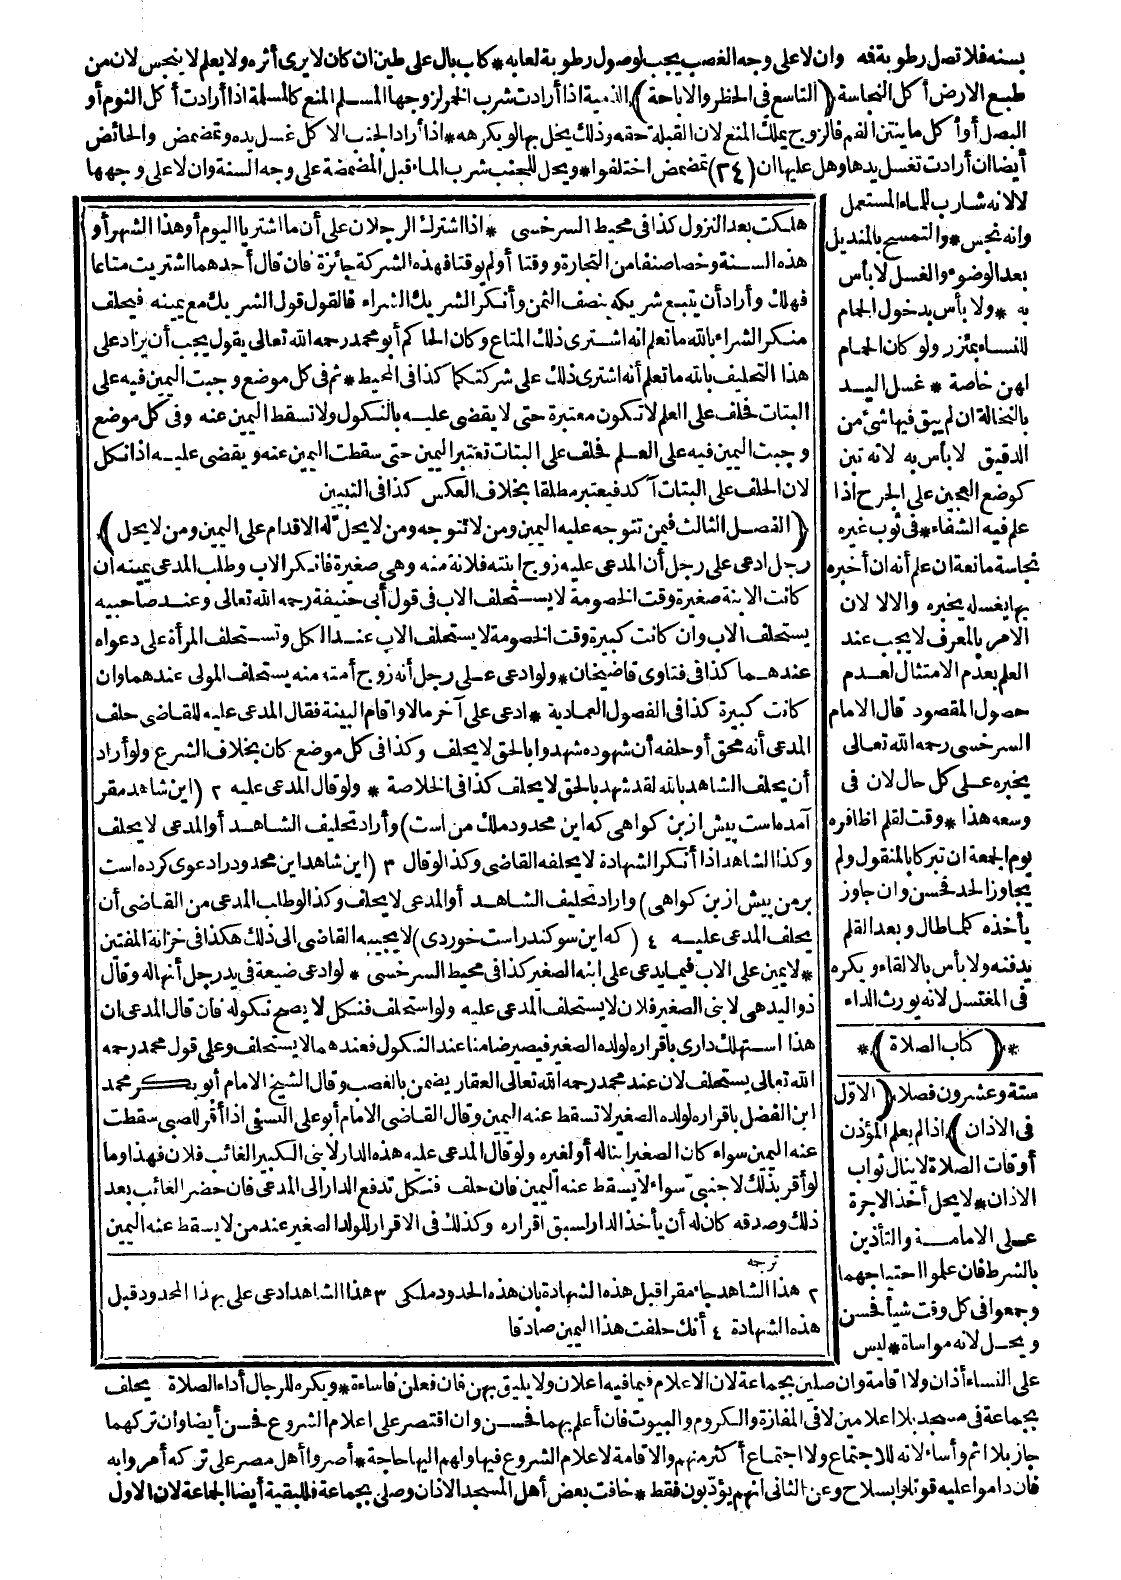 بسنه فلا تصل رطوبة فه وان لا على وجه الغصب يجب لوصول رطوبة لعابه * كاب بال على طين ان كان لا يرى أثره ولا يعلم لا ينجس لان من
طبع الارض أكل النجاسة ﴿ التاسع فى الحظر والاباحة ﴾ الذمية اذا أرادت شرب الخمر لزوجها المسلم المنع كالمسلمة اذا أرادت أكل الثوم أو
البصل أو أكل ما ينتن الفم فالزوج يملك المنع لان القبلة حقه وذلك يخل بها أو يكرهه * اذا أراد الجنب الاكل غسل يده وتمضمض والحائض
أيضا ان أرادت تغسل يدها وهل عليها ان (٢٤) تمضمض اختلفوا * ويحل للجنب شرب الماء قبل المضمضة على وجه السنة وان لا على وجهها
لا لانه شارب للماء المستعمل
وانه نجس * والتمسح بالمنديل
بعد الوضوء والغسل لا بأس
به * ولا بأس بدخول الحمام
للنساء بمئزر ولو كان الحمام
لهن خاصة * غسل اليد
بالنخالة ان لم يبق فيها شئ من
الدقيق لا بأس به لانه تبن
كوضع العجين على الجرح اذا
علم فيه الشفاء * فى ثوب غيره
نجاسة مانعة ان علم أنه ان أخبره
بها يغسله يخبره والا لا لان
الامر بالمعرف لا يجب عند
العلم بعدم الامتثال لعدم
حصول المقصود قال الامام
السرخسى رحمه الله تعالى
يخبره على كل حال لان فى
وسعه هذا * وقت لقلم اظافره
يوم الجمعة ان تبركا بالمنقول ولم
يجاوز الحد فحسن وان جاوز
يأخذه كلما طال وبعد القلم
يدفنه ولا بأس بالالقاء ويكره
فى المغتسل لانه يورث الداء
* ﴿ كتاب الصلاة ﴾ *
ستة وعشرون فصلا ﴿ الاوّل
فى الاذان ﴾ اذا لم يعلم المؤذن
أوقات الصلاة لا ينال ثواب
الاذان * لا يحل أخذ الاجرة
على الامامة والتأذين
بالشرط فان علموا احتياجهما
وجمعوا فى كل وقت شيأ فحسن
ويحل لانه مواساة * ليس
هلكت بعد النزول كذا فى محيط السرخسى * اذا اشترك الرجلان على أن ما اشتريا اليوم أو هذا الشهر أو
هذه السنة وخصا صنفا من التجارة ووقتا أو لم يوقتا فهذه الشركة جائزة فان قال أحدهما اشتريت متاعا
فهلك وأراد أن يتبع شريكه بنصف الثمن وأنكر الشريك الشراء فالقول قول الشريك مع يمينه فيحلف
منكر الشراء بالله ما تعلم انه اشترى ذلك المتاع وكان الحاكم أبو محمد رحمه الله تعالى يقول يجب أن يزاد على
هذا التحليف بالله ما تعلم أنه اشترى ذلك على شركتكما كذا فى المحيط * ثم فى كل موضع وجبت اليمين فيه على
البتات فحلف على العلم لا تكون معتبرة حتى لا يقضى عليه بالنكول ولا تسقط اليمين عنه وفى كل موضع
وجبت اليمين فيه على العلم فحلف على البتات تعتبر اليمين حتى سقطت اليمين عنه ويقضى عليه اذا نكل
لان الحلف على البتات آكد فيعتبر مطلقا بخلاف العكس كذا فى التبيين
﴿ الفصل الثالث فيمن تتوجه عليه اليمين ومن لا تتوجه ومن لا يحل له الاقدام على اليمين ومن لا يحل ﴾
رجل ادعى على رجل أن المدعى عليه زوج ابنته فلانة منه وهى صغيرة فانكر الاب وطلب المدعى يمينه ان
كانت الابنة صغيرة وقت الخصومة لا يستحلف الاب فى قول أبى حنيفة رحمه الله تعالى وعند صاحبيه
يستحلف الاب وان كانت كبيرة وقت الخصومة لا يستحلف الاب عند الكل وتستحلف المرأة على دعواه
عندهما كذا فى فتاوى قاضيخان * ولو ادعى على رجل أنه زوج أمته منه يستحلف المولى عندهما وان
كانت كبيرة كذا فى الفصول العمادية * ادعى على آخر مالا واقام البينة فقال المدعى عليه للقاضى حلف
المدعى أنه محق أو حلفه أن شهوده شهدوا بالحق لا يحلف وكذا فى كل موضع كان بخلاف الشرع ولو أراد
أن يحلف الشاهد بالله لقد شهد بالحق لا يحلف كذا فى الخلاصة * ولو قال المدعى عليه ٢ (اين شاهد مقر
آمده است پيش ازين كواهى كه اين محدود ملك من است) وأراد تحليف الشاهد أو المدعى لا يحلف
وكذا الشاهد اذا أنكر الشهادة لا يحلفه القاضى وكذا لو قال ٣ (اين شاهد اين محدود را دعوى كرده است
بر من پيش ازين كواهى) واراد تحليف الشاهد أو المدعى لا يحلف وكذا لو طلب المدعى من القاضى أن
يحلف المدعى عليه ٤ (كه اين سوكند راست خوردى) لا يجيبه القاضى الى ذلك هكذا فى خزانة المفتين
* لا يمين على الاب فيما يدعى على ابنه الصغير كذا فى محيط السرخسى * لو ادعى ضيعة فى يد رجل أنها له وقال
ذو اليد هى لابنى الصغير فلان لا يستحلف المدعى عليه ولو استحلف فنكل لا يصح نكوله فان قال المدعى ان
هذا استهلك دارى باقراره لولده الصغير فيصير ضامنا عند النكول فعندهما لا يستحلف وعلى قول محمد رحمه
الله تعالى يستحلف لان عند محمد رحمه الله تعالى العقار يضمن بالغصب وقال الشيخ الامام أبو بكر محمد
ابن الفضل باقراره لولده الصغير لا تسقط عنه اليمين وقال القاضى الامام أبو على النسفى اذا أقر للصبى سقطت
عنه اليمين سواء كان الصغير ابنا له أو لغيره ولو قال المدعى عليه هذه الدار لابنى الكبير الغائب فلان فهذا وما
لو أقر بذلك لاجنبىّ سواء لا يسقط عنه اليمين فان حلف فنكل تدفع الدار الى المدعى فان حضر الغائب بعد
ذلك وصدقه كان له أن يأخذ الدار لسبق اقراره وكذلك فى الاقرار للولد الصغير عند من لا يسقط عنه اليمين
ترجمه
٢ هذا الشاهد جاء مقرا قبل هذه الشهادة بان هذه الحدود ملكى ٣ هذا الشاهد ادعى على بهذا المحدود قبل
هذه الشهادة ٤ أنك حلفت هذا اليمين صادقا
على النساء أذان ولا اقامة وان صلين بجماعة لان الاعلام فيما فيه اعلان ولا يليق بهن فان فعلن فاساءة * ويكره للرجال أداء الصلاة يحلف
بجماعة فى مسجد بلا اعلامين لا فى المفازة والكروم والبيوت فان أعلم بهما فحسن وان اقتصر على اعلام الشروع فحسن أيضا وان تركهما
جاز بلا اثم وأساء لانه للاجتماع ولا اجتماع أكثر منهم والاقامة لاعلام الشروع فيها ولهم اليها حاجة * أصروا أهل مصر على تركه أمروا به
فان داموا عليه قوتلوا بسلاح وعن الثانى انهم يؤدّبون فقط * خافت بعض أهل المسجد الاذان وصلى بجماعة فللبقية أيضا الجماعة لان الاول